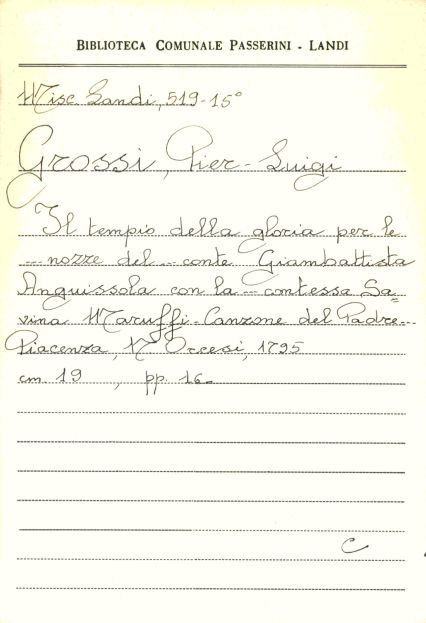 BIBLIOTECA COMUNALE PASSERINI - LANDI
Misc. Landi, 519-15°
Grossi, Pier-Luigi
Il tempio della gloria per le
... nozze del ... conte Giambattista
Anguissola con la ... contessa Sa=
vina Maruffi. Canzone del Padre...
Piacenza, N Orcesi, 1795
cm. 19 , pp. 16.
C